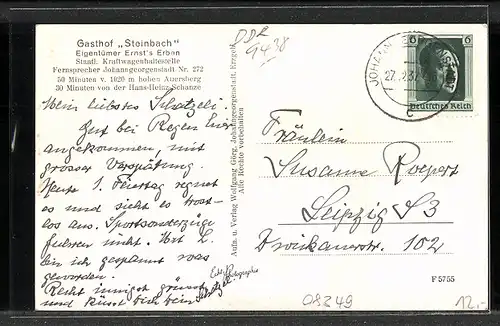 Gasthof „Steinbach"
Eigentümer Ernst's Erben
Staatl. Kraftwagenhaltestelle
Fernsprecher Johanngeorgenstadt Nr. 272
50 Minuten v. 1020 m hohen Auersberg
30 Minuten von der Hans-Heinz-Schanze
Mein liebstes Schatzeli
Gut bei Regen hier
angekommen, mit
grosser Verspätung.
Heute 1. Feiertag regnet
es und sieht es trost-
los aus. Sportsonderzüge
fuhren nicht.
bin ich gespannt was
geworden.
Recht innigst grüsst
und küsst Dich Dein
Schatzeli
Echte Photographie
Aufn. u. Verlag Wolfgang Görg, Johanngeorgenstadt, Erzgeb.
Alle Rechte vorbehalten
DDR
9438
JOHANN
27.
c
6
6
Deutsches Reich
Fräulein
Susanne Roepert
Leipzig S3
Zwickauerstr. 102
F 5755
08349
12,-